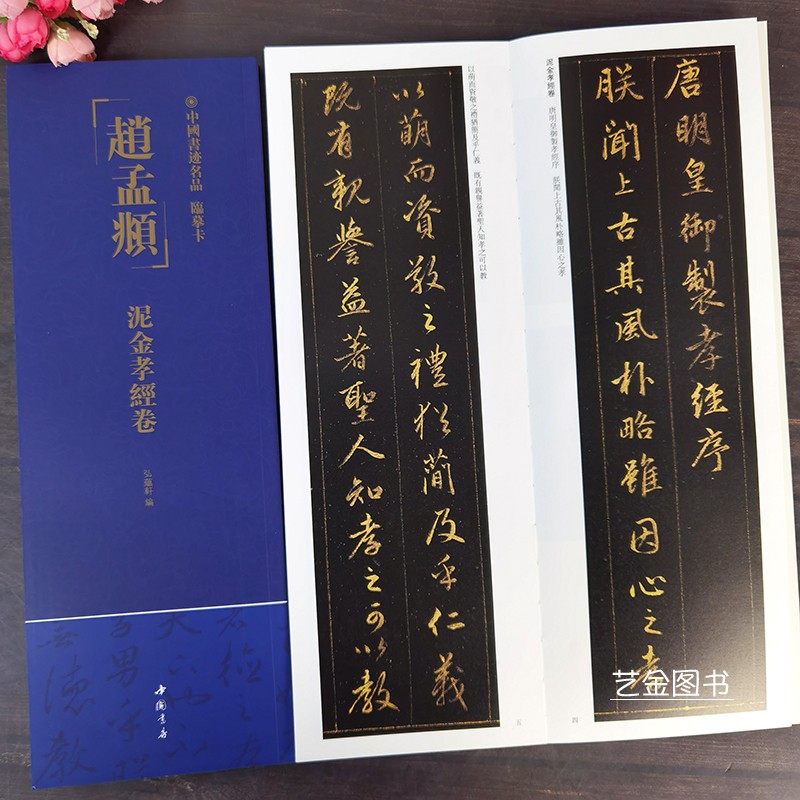 中國書迹名品 臨摹卡
趙孟頫
泥金孝經卷
弘蘊軒 編
中國書店
泥金孝經卷 唐明皇御製孝經序 朕聞上古其風朴略雖因心之孝
唐明皇御製孝經序
朕聞上古其風朴略雖因心之孝
四
以萌而資敬之禮猶簡及乎仁義 既有親譽益著聖人知孝之可以教
以萌而資敬之禮猶簡及乎仁義
既有親譽益著聖人知孝之可以教
五
艺金图书